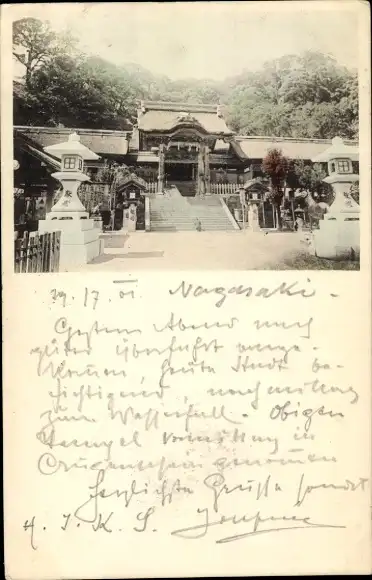 29./7. 01. Nagasaki.
Gestern Abend nach
guter Überfahrt ange-
kommen, heute Stadt be-
sichtigend, nachmittag
zum Wasserfall. Obigen
Tempel Vormittag in
genommen
Herzlichste Grüsse sendet
H. J. K. S.